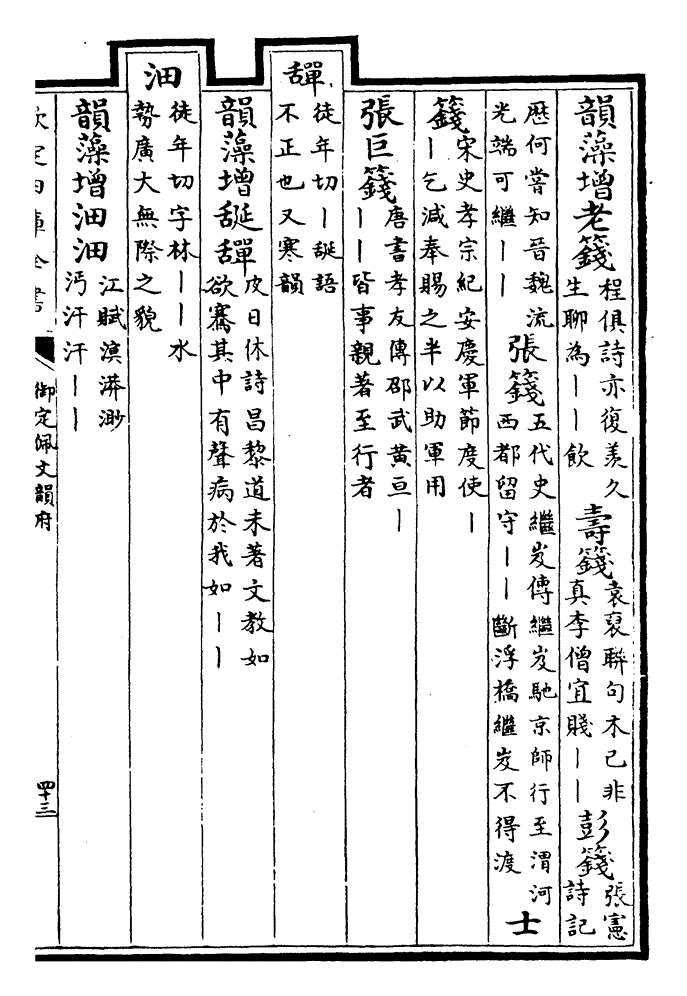 韻藻增老籛 程俱詩亦復羨久生聊為丨丨飲 壽籛 袁裒聯句木已非真李僧宜賤丨丨 彭籛 張憲詩記
歴何嘗知晉魏流光端可繼丨丨 張籛 五代史繼岌傳繼岌馳京師行至渭河西都留守丨丨斷浮橋繼岌不得渡 士
籛 宋史孝宗紀安慶軍節度使丨丨乞減奉賜之半以助軍用
張巨籛 唐書孝友傳邵武黄亘丨丨丨皆事親著至行者
徒年切丨語不正也又寒韻
韻藻增 皮日休詩昌黎道未著文教如欲騫其中有聲病於我如丨丨
沺 徒年切字林丨丨水勢廣大無際之貌
韻藻增沺沺 江賦溟漭渺沔汗汗丨丨
欽定四庫全書
御定佩文韻府
四十三